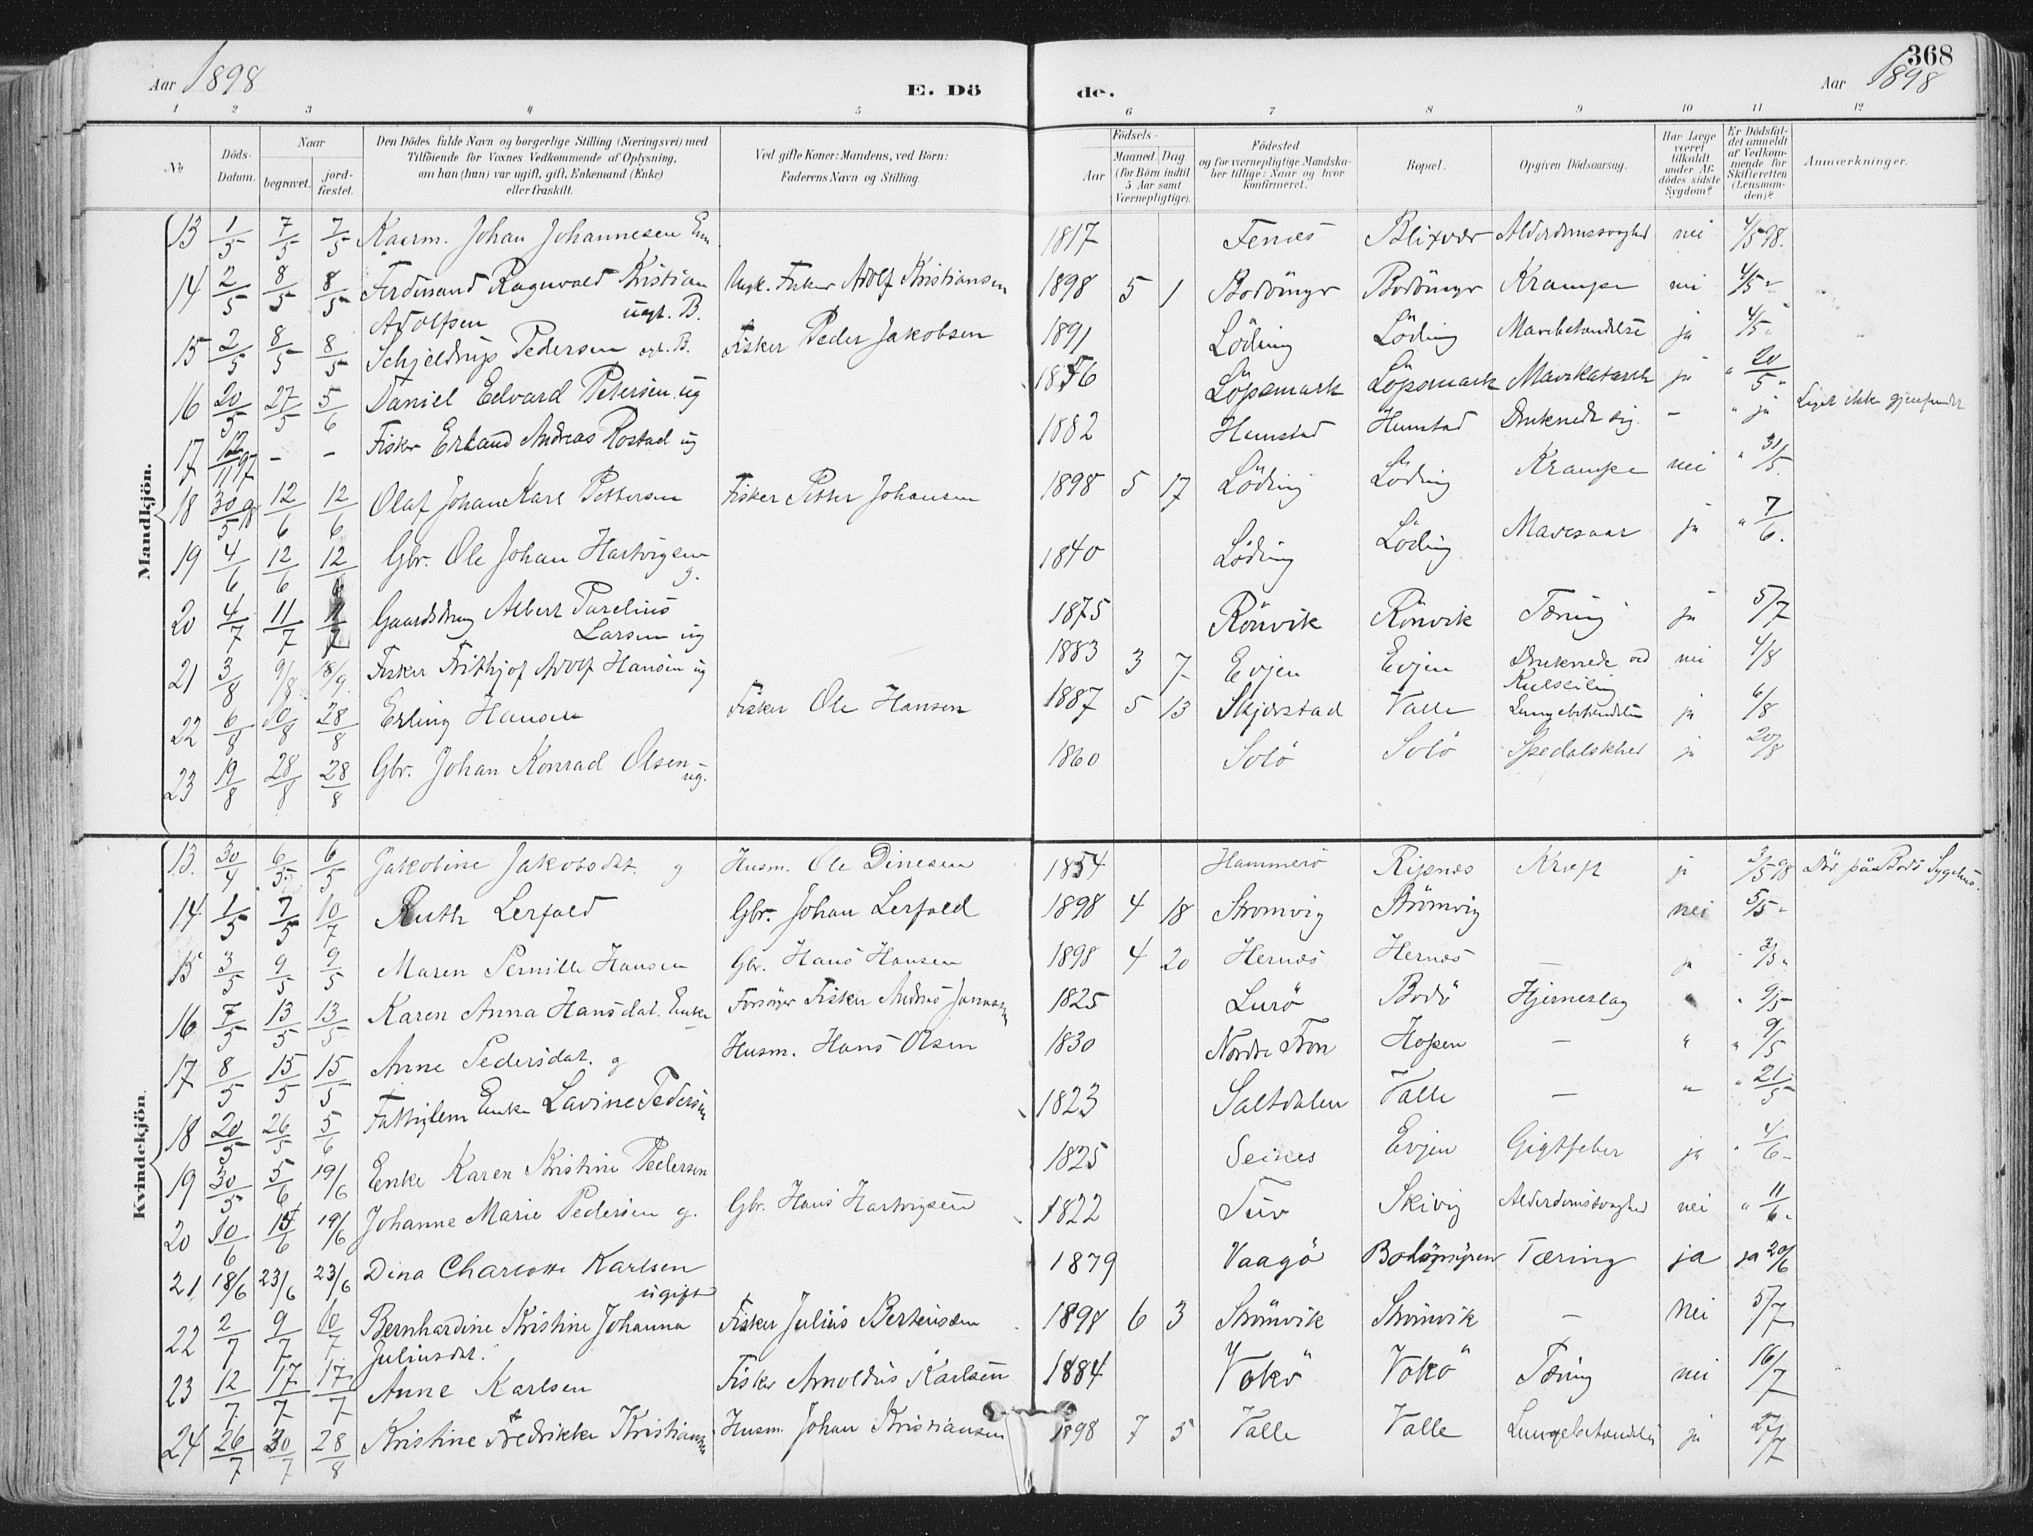 368
Aar 1898
E. Dö de.
Aar 1898
1 2 3 4 5 6 7 8 9 10 11 12
No
Döds-Datum.
Naar
begravet.
jord-fæstet.
Den Dödes fulde Navn og borgerlige Stilling (Næringsvei) med
Tilföiende for Voxnes Vedkommende af Oplysning,
om han (hun) var ugift, gift, Enkemand (Enke)
eller fraskilt.
Ved gifte Koner: Mandens, ved Börn:
Faderens Navn og Stilling.
Födsels-
Aar
Maaned. Dag
(for Börn indtil
5 Aar samt
Værnepligtige).
Födested
og for værnepligtige Mandska-
ber tillige: Naar og hvor
konfirmeret.
Bopæl.
Opgiven Dödsaarsag.
Har Læge
været
tilkaldt
under Af-
dödes sidste
Sygdom?
Er Dödsfal-
det anmeldt
af Vedkom-
mende for
Skifteretten
(Lensman-
den)?
Anmærkninger.
Mandkjön.
13 1/5 7/5 7/5 Kaarm. Johan Johannesen Em 1817 Fenes Blixvær Alderdomssvaghed nei 4/5 98.
14 2/5 8/5 8/5 Ferdinand Ragnvald Kristian Adolfsen ugt. B. Ungk. Fisker Adolf Kristiansen 1898 5 1 Bodömyr Bodömyr Krampe nei 4/5 "
15 2/5 8/5 8/5 Schjeldrup Pedersen B. Fisker Peder Jakobsen 1891 Löding Löding Mavebetændelse ja 4/5 "
16 20/5 27/5 5/6 Daniel Edvard Petersen ug 1856 Löpsmark Löpsmark Mavekatarrh ja " 20/5 "
17 12/11 97 - - Fisker Erland Andreas Rostad ug 1882 Hunstad Hunstad Druknede sig. - " ja Liget ikke gjenfundet
18 30/5 98 12/6 12/6 Olaf Johan Karl Pettersen Fisker Petter Johansen 1898 5 17 Löding Löding Krampe nei " 31/5.
19 4/6 12/6 12/6 Gbr. Ole Johan Hartvigsen g. 1840 Löding Löding Mavesaar ja " 7/6.
20 4/7 11/7 11/7 Gaardsdreng Albert Parelius Larsen ug 1875 Rönvik Rönvik Tæring ja 5/7
21 3/8 9/8 18/9 Fisker Frithjof Adolf Hansen ug 1883 3 7 Evjen Evjen Druknede ved Kulseiling nei 4/8
22 6/8 10/8 28/8 Erling Hansen Fisker Ole Hansen 1887 5 13 Skjerstad Valle Lungebetændelse ja 6/8
23 19/8 28/8 28/8 Gbr. Johan Konrad Olsen ug. 1860 Solö Solö Spedalskhed ja 20/8
Kvindekjön.
13. 30/4 6/5 6/5 Jakobine Jakobsdat. g Husm. Ole Dinesen 1854 Hammerö Ripnes Kræft ja 3/5 98 Död paa Bodö Sygehus.
14 1/5 7/5 10/7 Ruth Lerfald Gbr. Johan Lerfald 1898 4 18 Strömvig Strömvig nei 5/5 "
15 3/5 9/5 9/5 Maren Pernille Hansen Gbr. Hans Hansen 1898 4 20 Hernes Hernes - ja " 3/5 "
16 7/5 13/5 13/5 Karen Anna Hansdat. Enke Forsörger Fisker Andreas 1825 Lurö Bodö Hjerneslag " " 9/5
17 8/5 15/5 15/5 Anne Pedersdat. g Husm. Hans Olsen 1830 Nordre Fron Hopen - " " 9/5
18 20/5 26/5 5/6 Fattiglem Enke Lavine Pedersen 1823 Saltdalen Valle - " " 21/5
19 30/5 5/6 19/6 Enke Karen Kristine Pedersen 1825 Seines Evjen Gigtfeber ja " 4/6 "
20 10/6 15/6 19/6 Johanne Marie Pedersen g. Gbr. Hans Hartvigsen 1822 Tuv Skivig Alderdomssvaghed nei " 11/6 "
21 18/6 23/6 23/6 Dina Charlotte Karlsen ugift 1879 Vaagö Bodömyren Tæring ja ja 20/6
22 2/7 9/7 10/7 Bernhardine Kristine Johanna Juliusdat. Fisker Julius Berteussen 1898 6 3 Strömvik Strömvik - Nei 5/7
23 12/7 17/7 17/7 Anne Karlsen Fisker Arnoldus Karlsen 1884 Vokö Vokö Tæring nei 16/7
24 26/7 30/7 28/8 Kristine Fredrikke Kristiansen Husm. Johan Kristiansen 1898 7 5 Valle Valle Lungebetændelse ja 27/7